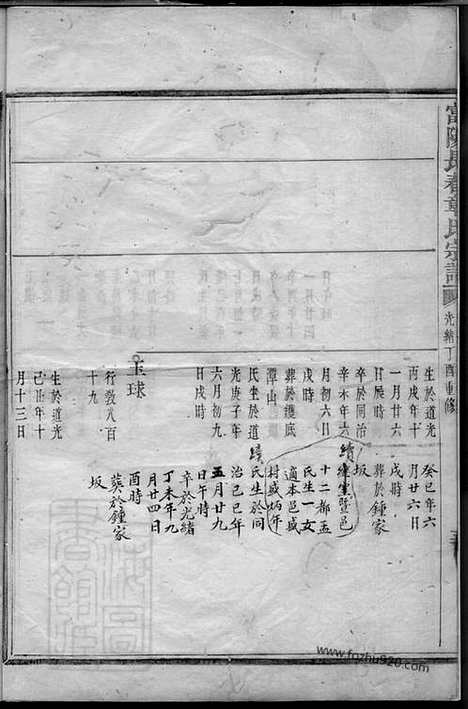 富陽長春章氏宗譜
光緒丁酉重修
生於道光
丙戌年十
一月廿六
日辰時
卒於同治
辛未年六
月初六日
戌時
葬於
潭山
氏生於道
光庚子年
六月初九
日戌時
玉球
行敎八百
十九
生於道光
己丑年十
月十三日
癸巳年六
月廿六日
戌時
葬於鍾家
坂
續
十二都孟
氏生一女
適本邑戚
村戚炳年
續氏生於同
治己巳年
五月廿九
日午時
卒於光緒
丁未年九
月廿四日
酉時
葬於鍾家
坂
www.fozhu920.com